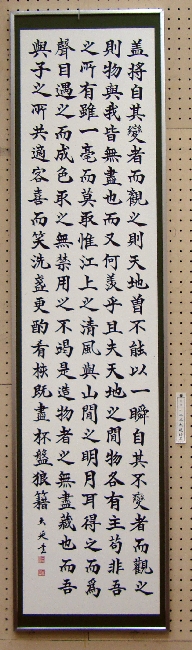 盖將自其變者而觀之則天地曾不能以一瞬自其不變者而觀之
則物與我皆無盡也而又何羨乎且夫天地之間物各有主苟非吾
之所有雖一毫而莫取惟江上之清風與山間之明月耳得之而爲
聲目遇之而成色取之無禁用之不竭是造物者之無盡藏也而吾
與子之所共適客喜而笑洗盞更酌肴核既盡杯盤狼籍